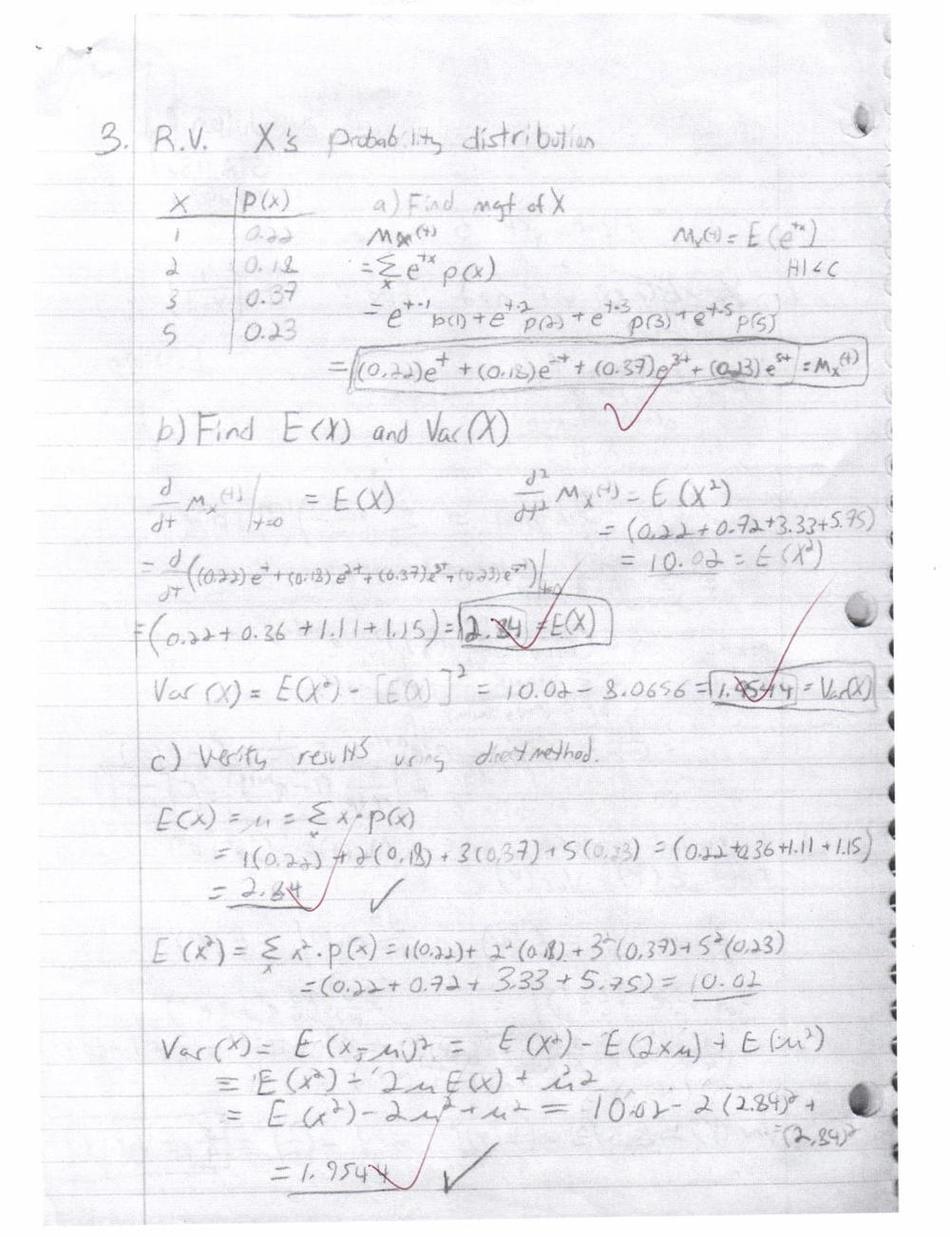 3. R.V. X's probability distribution
x p(x) a) Find mgf of X
1 0.22 Mx(t) Mx(t) = E(e^tx)
2 0.18 = Σ_x e^tx p(x) |t|<c
3 0.37 = e^t·1 p(1) + e^t·2 p(2) + e^t·3 p(3) + e^t·5 p(5)
5 0.23
= (0.22)e^t + (0.18)e^2t + (0.37)e^3t + (0.23)e^5t = Mx(t)
b) Find E(X) and Var(X)
d/dt Mx(t)|t=0 = E(X) d²/dt² Mx(t) = E(X²)
= (0.22+0.72+3.33+5.75)
= d/dt((0.22)e^t + (0.18)e^2t + (0.37)e^3t + (0.23)e^5t)|t=0 = 10.02 = E(X²)
= (0.22 + 0.36 + 1.11 + 1.15) = 2.84 = E(X)
Var(X) = E(X²) - [E(X)]² = 10.02 - 8.0656 = 1.9544 = Var(X)
c) Verify results using direct method.
E(X) = μ = Σ_x x·p(x)
= 1(0.22) + 2(0.18) + 3(0.37) + 5(0.23) = (0.22+0.36+1.11+1.15)
= 2.84 ✓
E(X²) = Σ_x x²·p(x) = 1(0.22) + 2²(0.18) + 3²(0.37) + 5²(0.23)
= (0.22 + 0.72 + 3.33 + 5.75) = 10.02
Var(X) = E(x-μ)² = E(X²) - E(2xμ) + E(μ²)
= E(x²) - 2μE(x) + μ²
= E(x²) - 2μ² + μ² = 10.02 - 2(2.84)² +
(2.84)²
= 1.9544 ✓